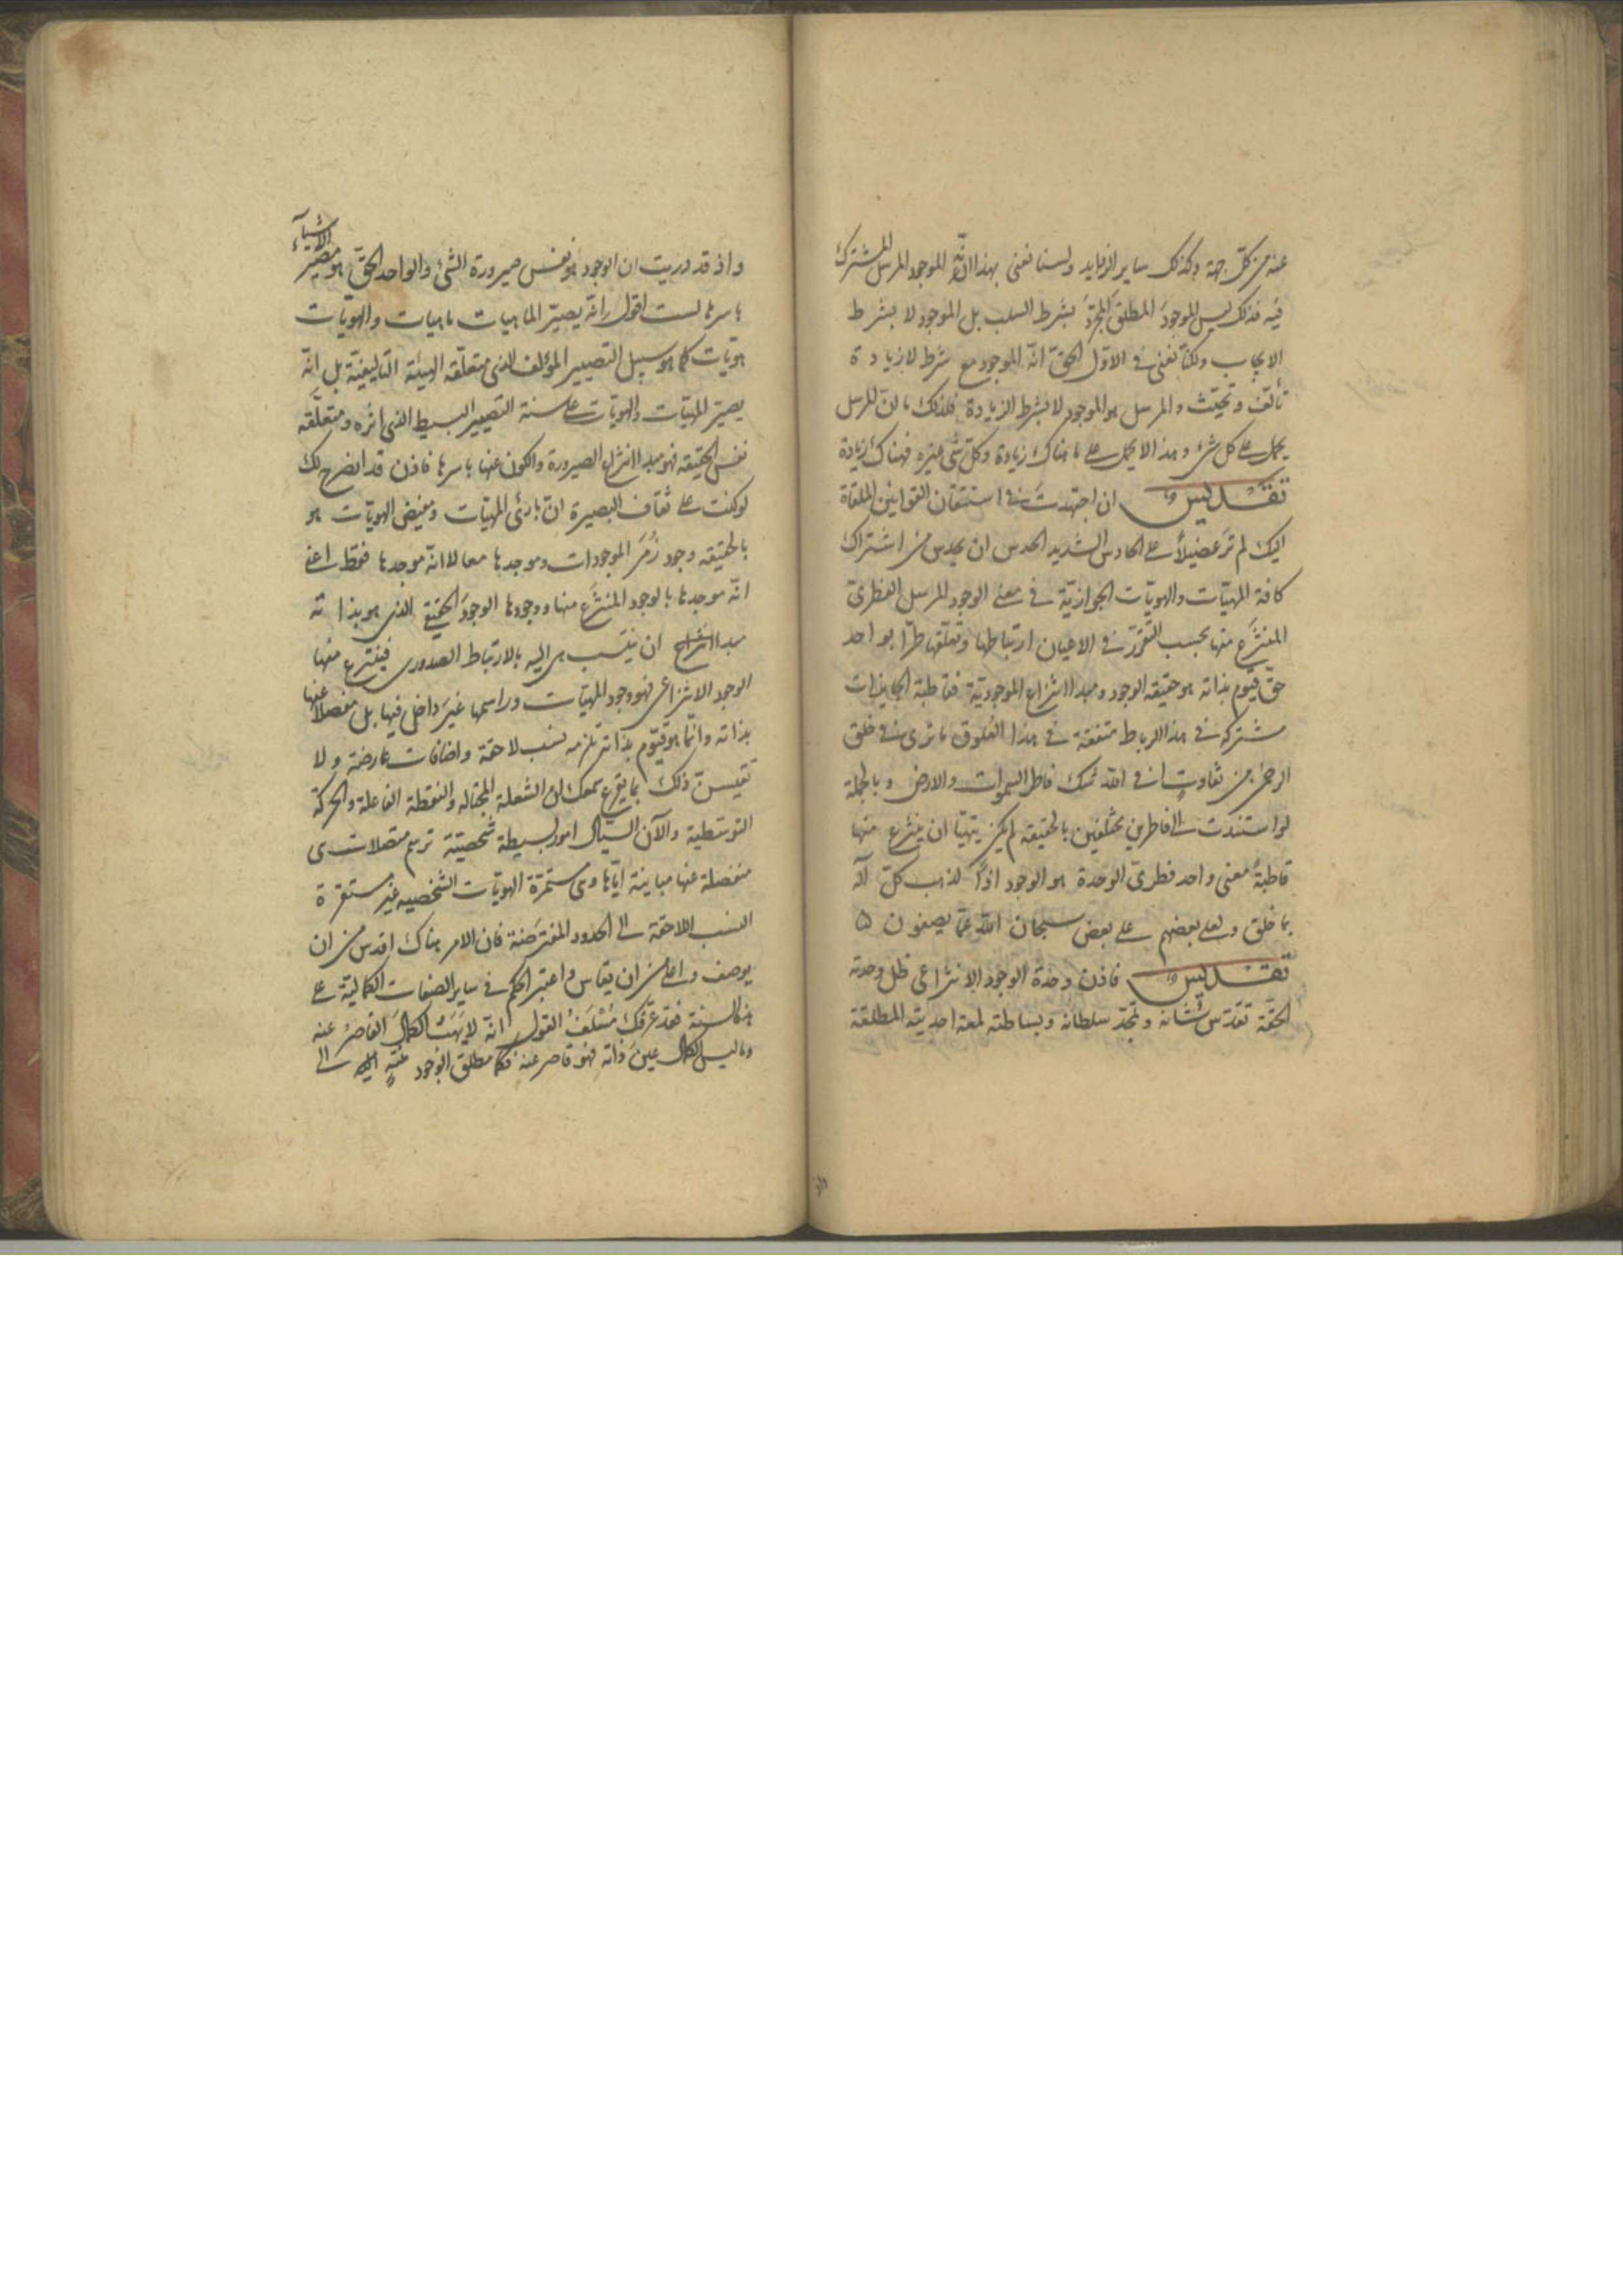 عنه من كل جهة وكذلك ساير الزوايد ولسنا نعنى بهذا انه الموجود المرسل المشترك
فيه فذلك ليس الموجودَ المطلق المجرّدَ بشرط السلب بل الموجود لا بشرط
الايجاب ولكنّا نعنى فى الاوّل الحقّ انّه الموجود مع شرط لا زيادة
تألّف وتحيّث والمرسل هو الموجود لا بشرط الزيادة فلذلك ما ان المرسل
يحمل على كل شئ وهذا لا يحمل على ما هناك زيادة وكل شى غيره فهناك زيادة
تقديس ان اجتهدتَ فى استتقان القوانين الملقاة
اليك لم ترَ عضيلاً على الحادس الشديد الحدس ان يحدس من اشتراك
كافة المهيّات والهويّات الجوازيّة فى معنى الوجود المرسل الفطرى
المنتزَع منها بحسب التقرّر فى الاعيان ارتباطها وتعلّقها طرّا بواحد
حقّ قيّوم بذاته هو حقيقه الوجود ومبدا انتزاع الموجوديّة فقاطبة الجايزات
مشتركة فى هذا الرباط متفقة فى هذا العلوق ما ترى فى خلق
الرحمن من تفاوتٍ افى الله شك فاطر السموات والارض وبالجملة
لو استندت الى فاطرين مختلفين بالحقيقه لم يكن يتهيّا ان ينتزع منها
قاطبةً معنى واحد فطرى الوحدة هو الوجود اذاً لذهب كلّ اله
بما خلق ولعلى بعضهم على بعض سبحان الله عمّا يصفون
تقديس فاذن وحدة الوجود الانتزاعى ظل وحدته
الحقّة تقدّس شانه وتمجّد سلطانه وبساطته لمعة احديته المطلقة
واذ
واذ قد دريت ان الوجود هو نفس صيرورة الشئ والواحد الحقّ هو مصيّر الاشياء
باسرها لست اقول انّه يصيّر الماهيات ماهيات والهويّات
هويّات كما هو سبيل التصيير المؤلف الذى متعلّقه الهيئة التاليفيّة بل انّه
يصيّر المهيّات والهويّات على سنة التصيير البسيط الذى اثره ومتعلّقه
نفس الحقيقه فهو مبدا انتزاع الصيرورة والكون عنها باسرها فاذن قد انصرح لك
لو كنت على ثقاف البصيرة ان بارئ المهيّات ومفيض الهويّات هو
بالحقيقه وجود زُمَر الموجودات وموجدها معا لا انّه موجدها فقط اعنى
انّه موجدها بالوجود المنتزَع منها ووجودها الوجودَ الحقيقى الذى هو بذاته
مبدا انتزاع ان ينتسب هى اليه بالارتباط الصدورى فينتزع منها
الوجود الانتزاعى فهو وجود المهيّات وراسمها غيرَ داخل فيها بل منفصلا عنها
بذاته وانّما هو قيّوم بذاته تلزمه نسب لاحقة واضافات عارضة ولا
تقيسنّ ذلك بما يقرع سمعك ان الشعلة الجوّالة والنقطة الفاعلة والحركة
التوسّطية والآن السيّال امور بسيطة شخصيّة ترسم متصلات هى
منفصلة عنها مباينة ايّاها وهى مستمرّة الهويّات الشخصيه غير مستقرة
النسب اللاحقة الى الحدود المفترَضة فان الامر هناك اقدس من ان
يوصف واعلى من ان يقاس واعتبر الحكم فى ساير الصفات الكماليّة على
هذه السنة فقد عرّفك مُسْلَفُ القول انّه لا يَهَبُ الكمالَ القاصرُ عنه
وما ليس الكمال عينَ ذاته فهو قاصر عنه فكما مطلق الوجود الى